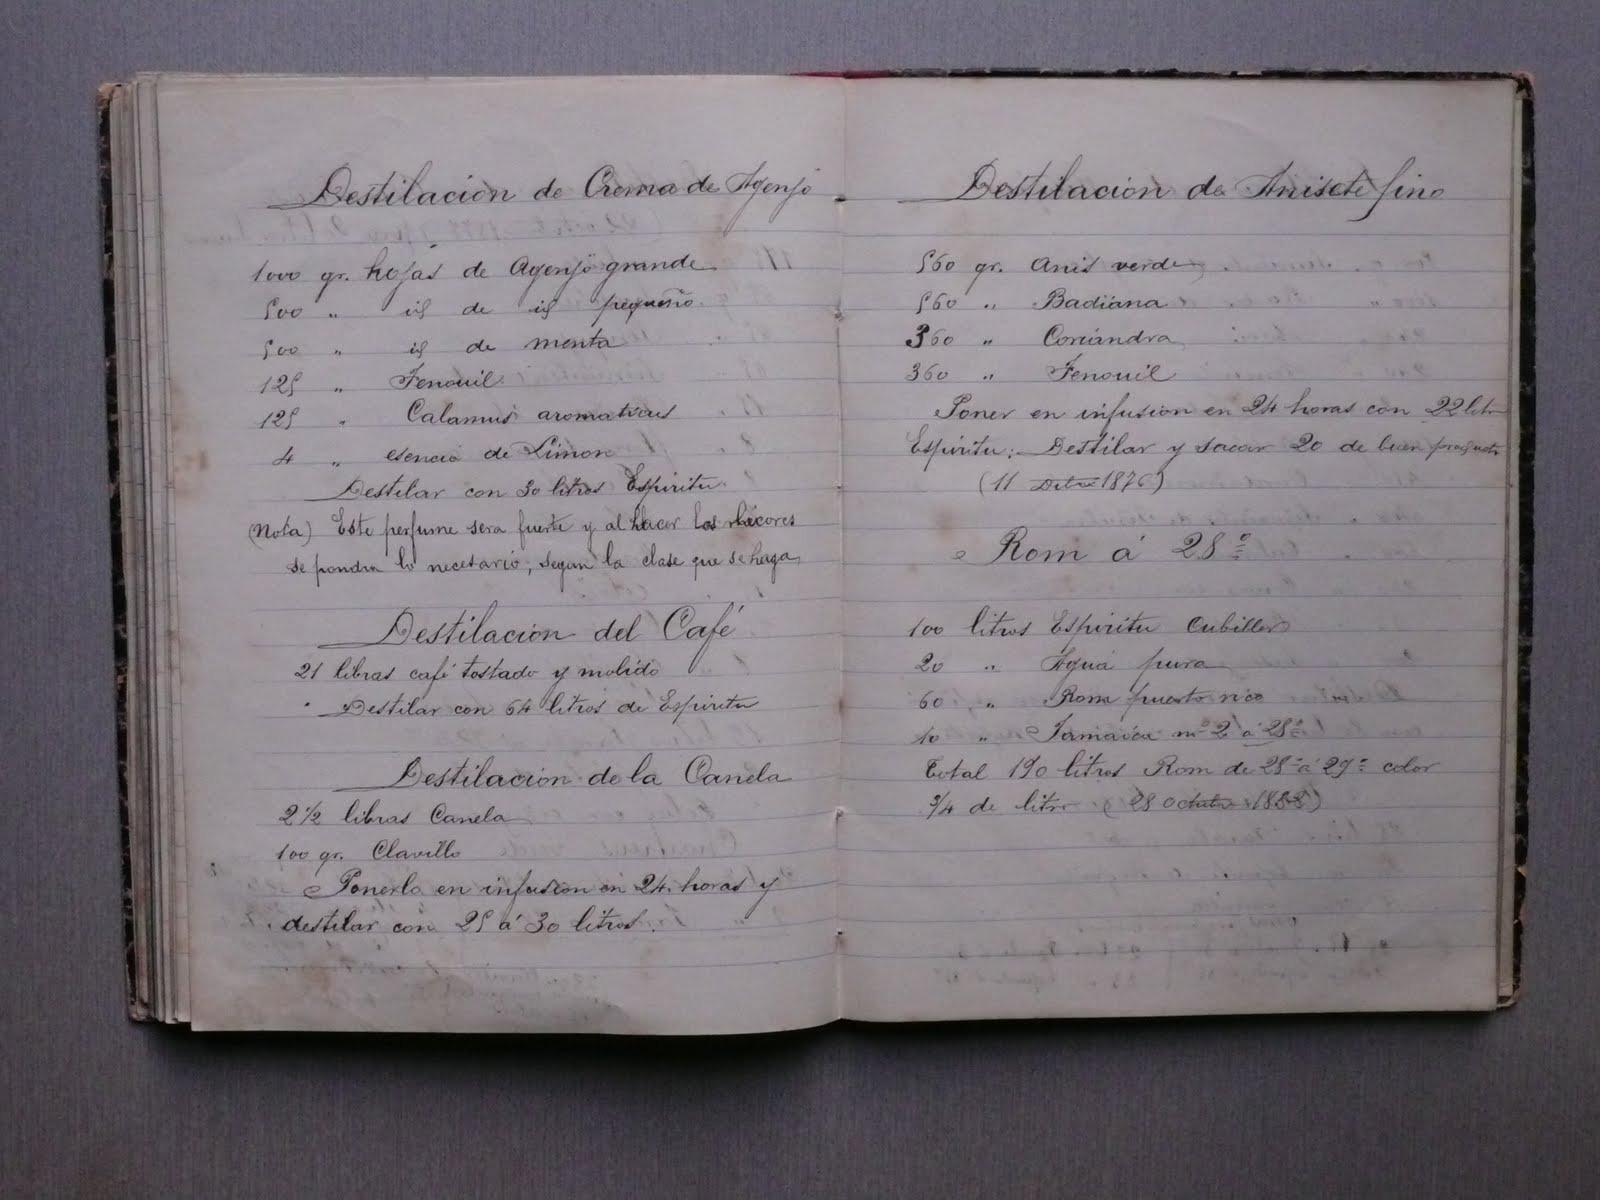 Destilacion de Crema de Agenjo
1000 gr. hojas de Agenjo grande
500 " id de id pequeño.
500 " id de menta
125 " Fenouil
125 " Calamus aromaticus
4 " esencia de Limon
Destilar con 30 litros Espiritu.
(Nota) Este perfume sera fuerte y al hacer los licores
se pondra lo necesario, segun la clase que se haga
Destilacion del Café
21 libras café tostado y molido
Destilar con 64 litros de Espiritu
Destilacion de la Canela
2 1/2 libras Canela
100 gr. Clavillo
Ponerlo en infusion en 24 horas y
destilar con 25 á 30 litros.
Destilacion de Anisete fino
560 gr. Anis verde
560 " Badiana
360 " Coriandra
360 " Fenouil
Poner en infusion en 24 horas con 22 lit
Espiritu: Destilar y sacar 20 de buen producto
(11 1876)
Rom á 28º
100 litros Espiritu Cubiller
20 " Agua pura
60 " Rom puerto rico
10 " Jamaica nº 2 á 28º
Total 190 litros Rom de 28º á 29º color
3/4 de litro (28 octubre 1888)